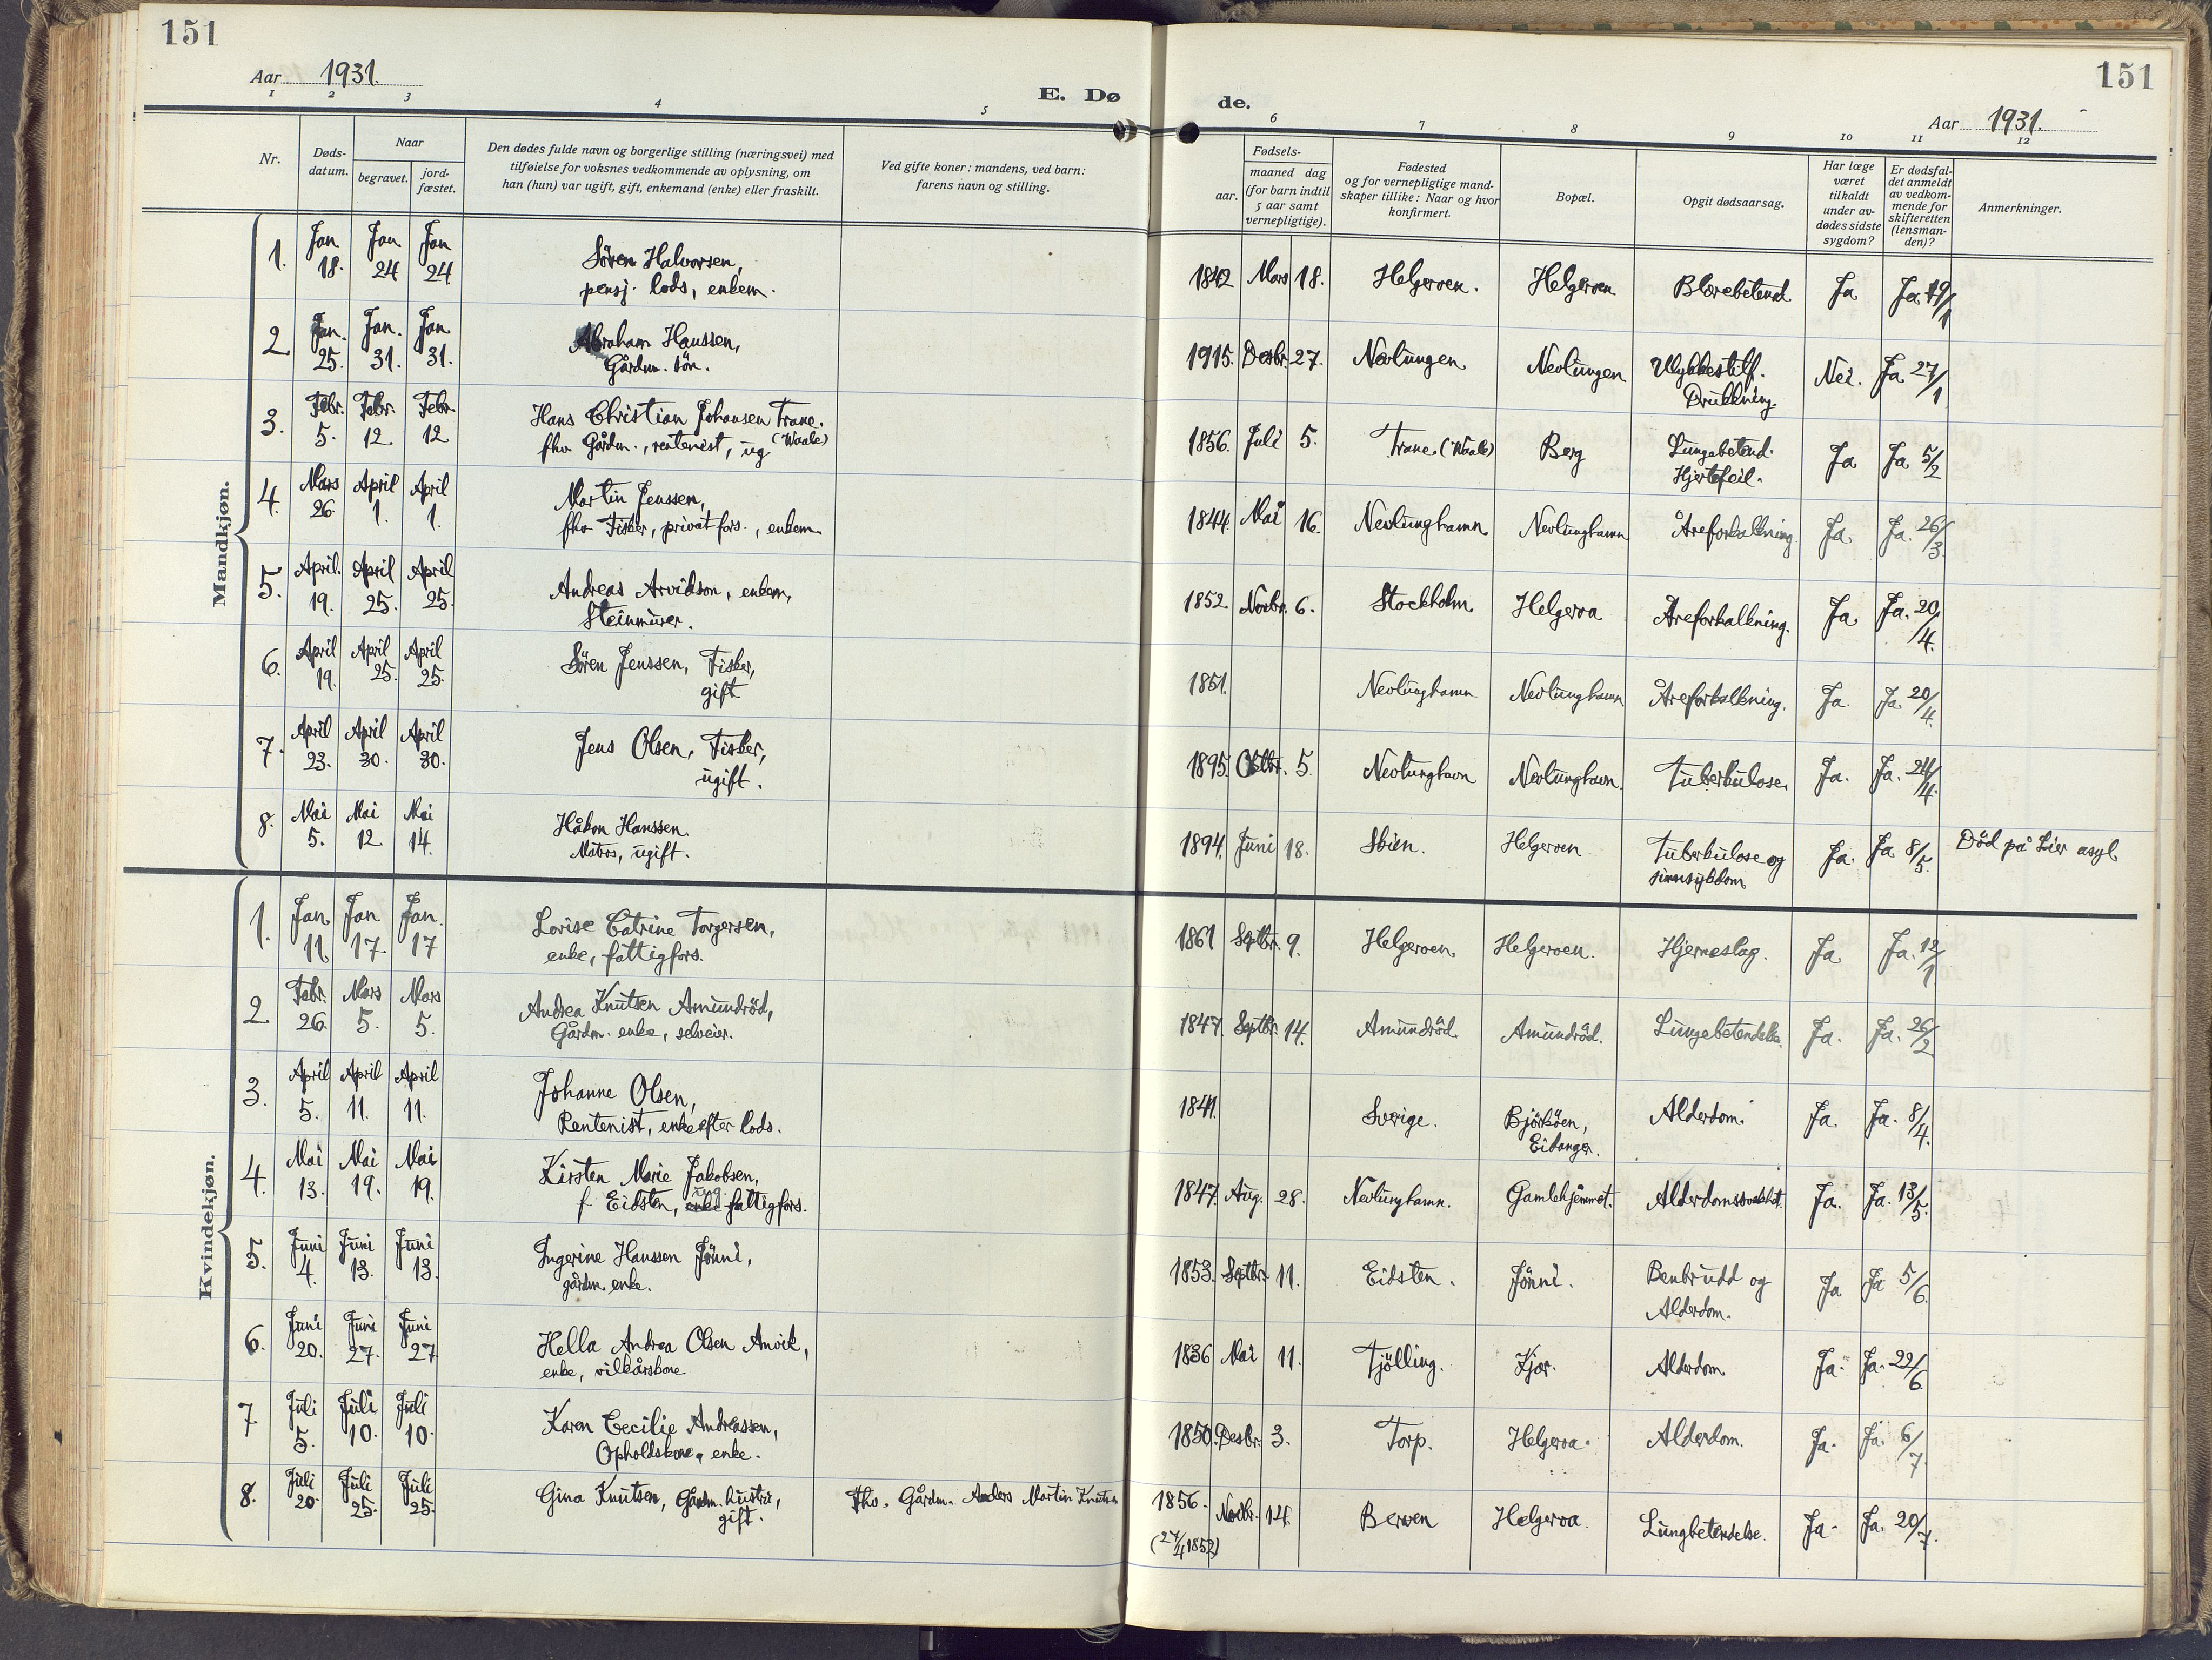 151
151
Aar 1931.
E. Dø de.
Aar 1931.
1 2 3 4 5 6 7 8 9 10 11 12
Nr.
Døds-
datum.
Naar
begravet.
jord-
fæstet.
Den dødes fulde navn og borgerlige stilling (næringsvei) med
tilføielse for voksnes vedkommende av oplysning, om
han (hun) var ugift, gift, enkemand (enke) eller fraskilt.
Ved gifte koner: mandens, ved barn:
farens navn og stilling.
Fødsels-
aar.
maaned dag
(for barn indtil
5 aar samt
vernepligtige).
Fødested
og for vernepligtige mand-
skaper tillike: Naar og hvor
konfirmert.
Bopæl.
Opgit dødsaarsag.
Har læge
været
tilkaldt
under av-
dødes sidste
sygdom?
Er dødsfal-
det anmeldt
av vedkom-
mende for
skifteretten
(lensman-
den)?
Anmerkninger.
Mandkjøn.
1. Jan 18. Jan 24 Jan 24 Sören Halvorsen, 1842 Mars 18. Helgeroen. Helgeroen Blærebetend. Ja Ja 19/1
pensj. lods, enkem.
2 Jan. 25. Jan. 31. Jan 31. Abraham Hanssen, 1915. Desbr. 27. Nevlungen Nevlungen Ulykkestilf. Nei. Ja 27/1
Gårdm. sön. Drukkning.
3. Febr. 5. Febr. 12 Febr. 12 Hans Christian Johansen Trane. 1856. Juli 5. Trane. (Waale) Berg Lungebetend. Ja Ja 5/2
fhv. Gårdm., rentenist, ug (Waale) Hjertefeil.
4. Mars 26. April 1. April 1. Martin Jenssen, 1844. Mai 16. Nevlunghamn Nevlunghamn Åreforkalkning. Ja. Ja. 26/3.
fhv. Fisker, privat fors., enkem.
5. April. 19. April 25. April 25. Andreas Arvidson, enkem, 1852. Novbr. 6. Stockholm Helgeroa Åreforkalkning. Ja Ja. 20/4.
Steinmurer.
6. April 19. April 25. April 25. Sören Jenssen, Fisker, 1851. Nevlunghamn Nevlunghamn Åreforkalkning. Ja. Ja 20/4.
gift
7. April 23. April 30. April 30. Jens Olsen, Fisker, 1895. Oktbr. 5. Nevlunghavn Nevlunghavn. Tuberkulose. Ja. Ja. 24/4.
ugift.
8. Mai 5. Mai 12. Mai 14. Håkon Hanssen. 1894. Juni 18. Skien. Helgeroen Tuberkulose og Ja. Ja 8/5. Död på Lier asyl
Matros, ugift. sinnsykdom
Kvindekjøn.
1. Jan 11 Jan 17. Jan. 17 Lovise Catrine Torgersen, 1861 Septbr. 9. Helgeroen. Helgeroen. Hjerneslag. Ja Ja. 12/1.
enke, fattigfors.
2 Febr. 26. Mars 5. Mars 5. Andrea Knutsen Amundröd, 1847. Septbr. 14. Amundröd. Amundröd. Lungebetendelse. Ja. Ja. 26/2
Gårdm. enke, selveier.
3. April 5. April 11. April 11. Johanne Olsen, 1841. Sverige. Björköen, Alderdom. Ja. Ja. 8/4.
Rentenist, enke efter lods. Eidanger.
4. Mai 13. Mai 19. Mai 19. Kirsten Marie Jakobsen, 1847. Aug. 28. Nevlunghamn. Gamlehjemmet. Alderdomssvakhet. Ja. Ja. 13/5.
ug.
f. Eidsten, enke fattigfors.
5. Juni 4. Juni 13. Juni 13. Ingerine Hanssen Jönni, 1853. Septbr. 11. Eidsten. Jönni. Benbrudd og Ja Ja 5/6.
gårdm. enke. Alderdom.
6. Juni 20. Juni 27. Juni 27 Hella Andrea Olsen Anvik, 1836 Mai 11. Tjölling. Kjær. Alderdom. Ja. Ja. 22/6.
enke, vilkårskone
7 Juli 5. Juli 10. Juli 10. Karen Cecilie Andreassen, 1850. Desbr. 3. Torp. Helgeroa. Alderdom. Ja. Ja. 6/7.
Opholdskone, enke.
8. Juli 20. Juli 25. Juli 25. Gina Knutsen, Gårdm. hustru, Fhv. Gårdm. Anders Martin Knutsen 1856. Novbr. 14. Berven Helgeroa. Lungbetendelse. Ja. Ja. 20/7.
gift. (27/4 1852)